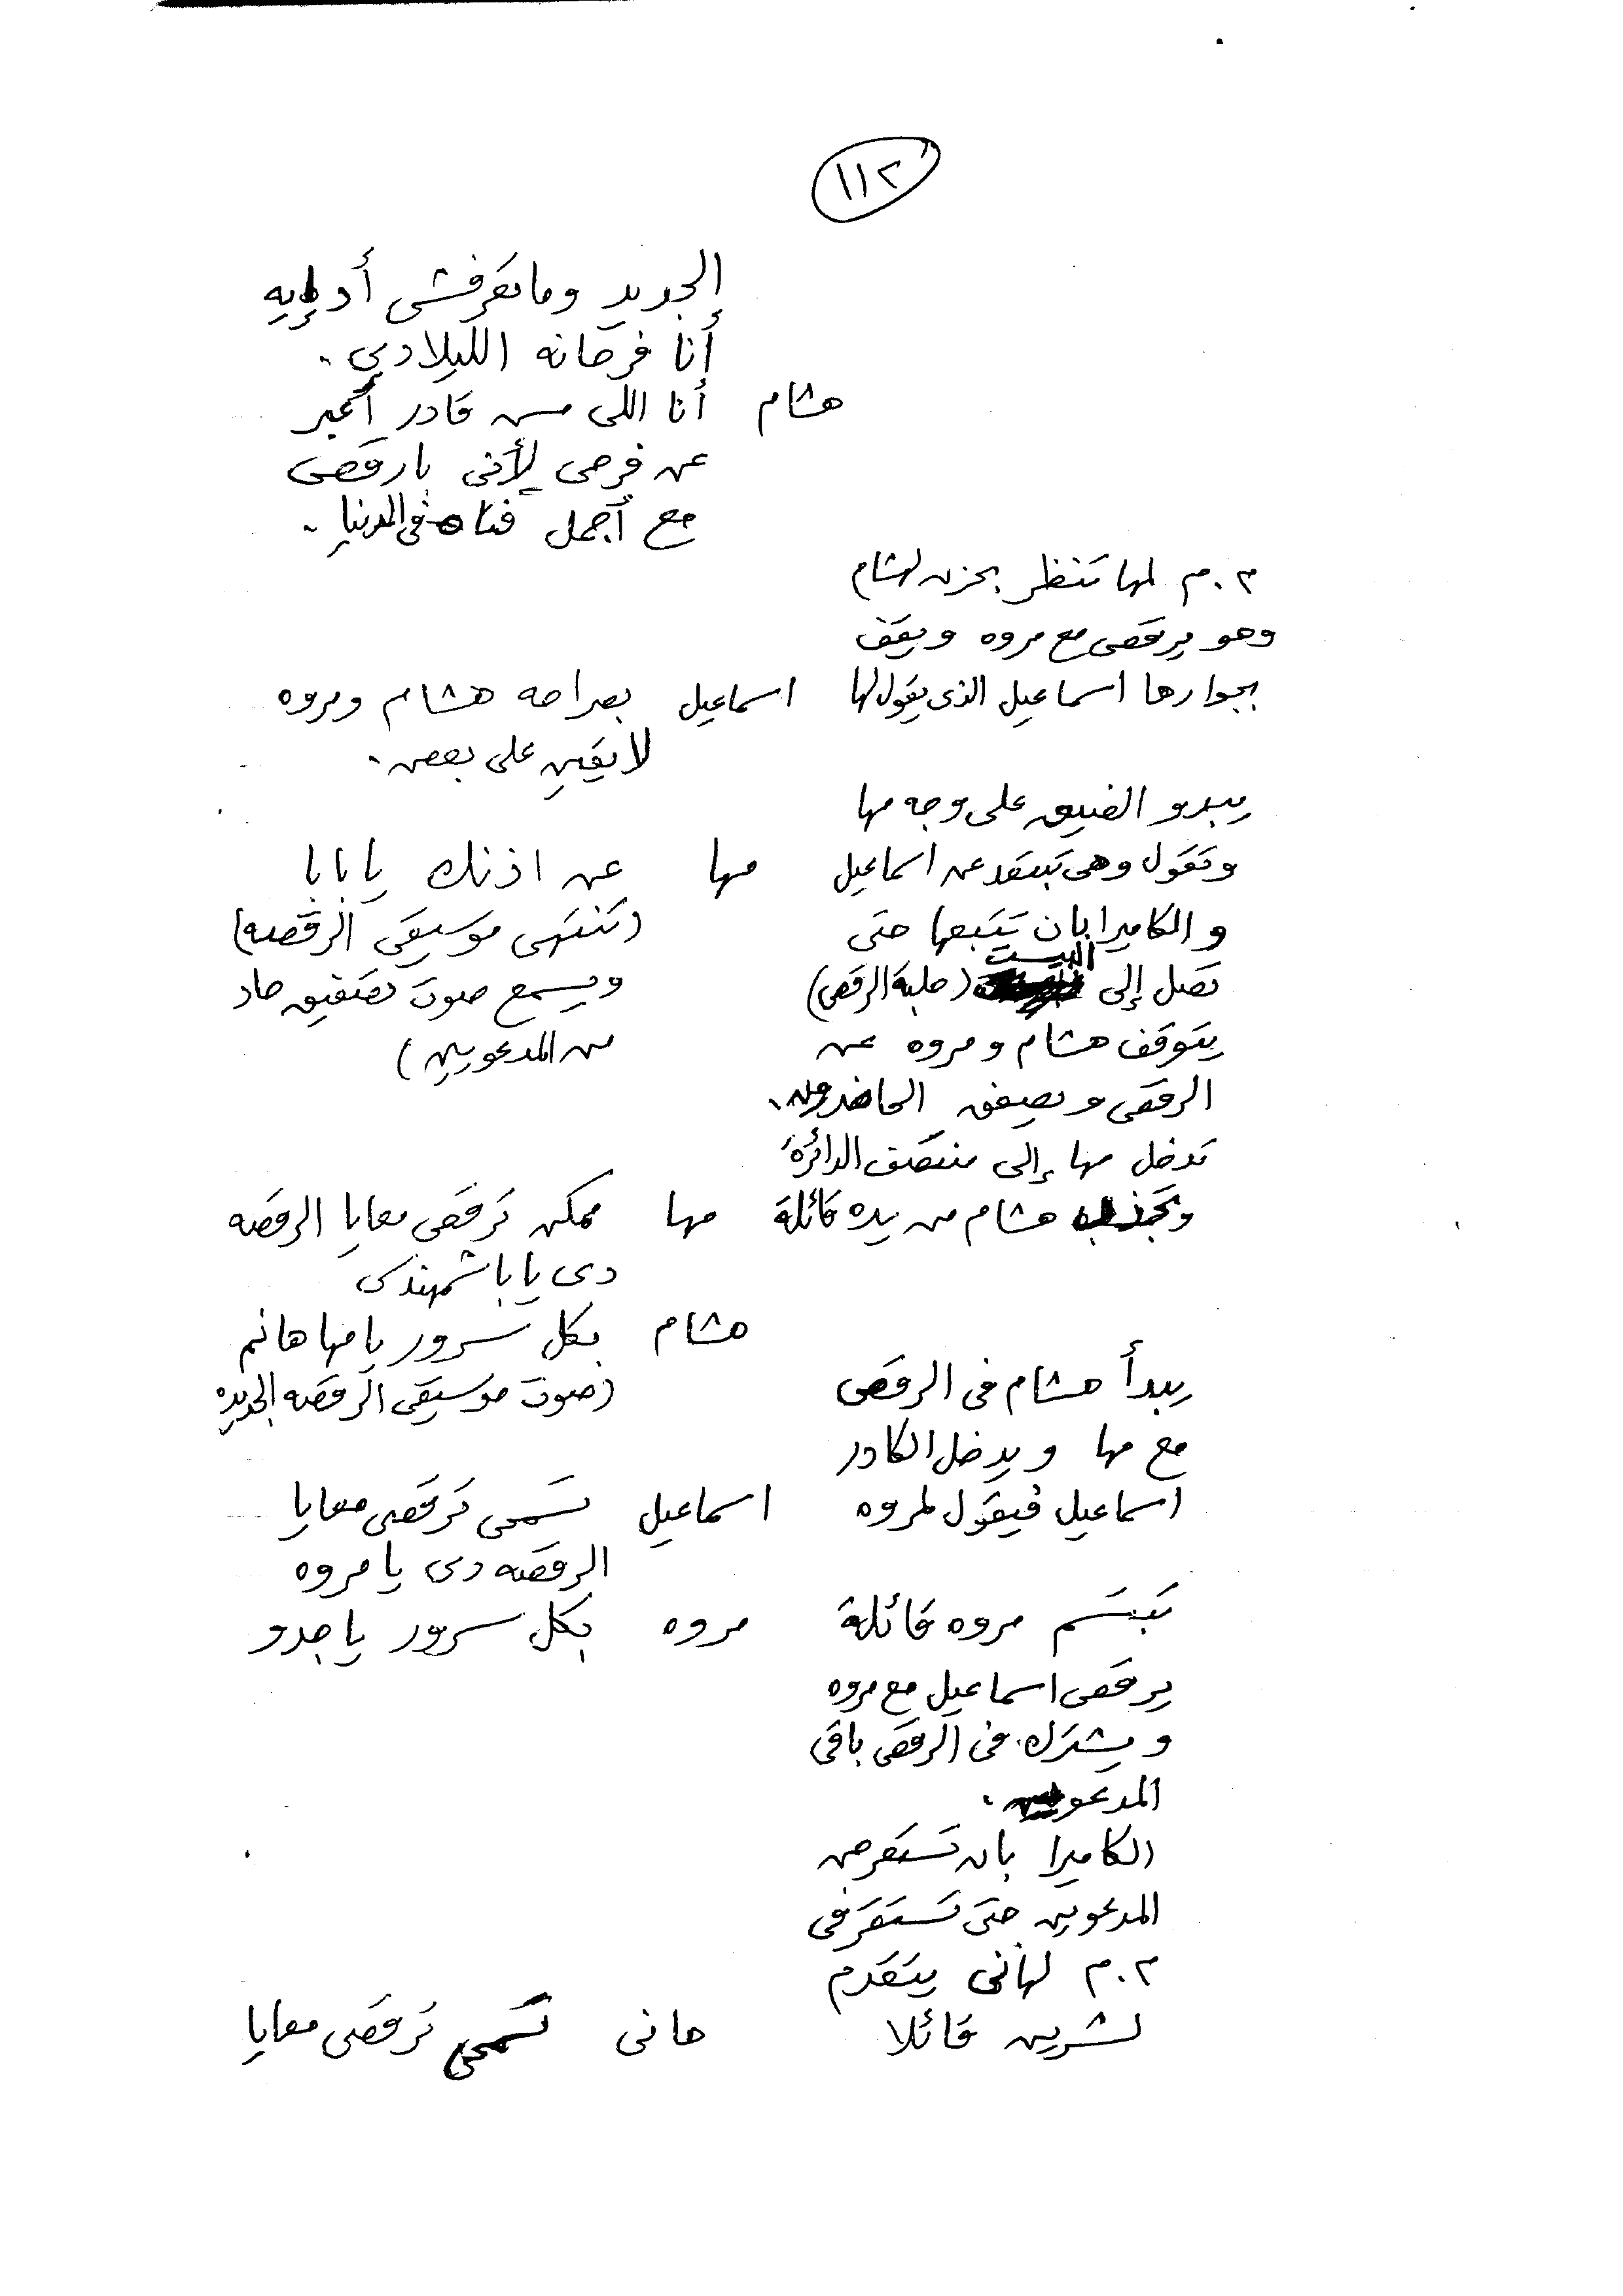 ١١٢
الجديد وماتعرفشى أد إيه
أنا فرحانه الليلادى .
هشام أنا اللى مش قادر أعبر
عن فرحى لأنى بارقص
مع أجمل فتاه فى الدنيا .
م . م لمها تنظر بحزن لهشام
وهو يرقص مع مروه ويقف
بجوارها اسماعيل الذى يقول لها اسماعيل بصراحه هشام ومروه
لايقين على بعض .
يبدو الضيق على وجه مها
وتقول وهى تبتعد عن اسماعيل مها عن اذنك يا بابا
والكاميرا بان تتبعها حتى (تنتهى موسيقى الرقصه)
تصل إلى البيست (حلبة الرقص) ويسمع صوت تصفيق حاد
يتوقف هشام ومروه عن من المدعويين)
الرقص ويصفق الحاضرون .
تدخل مها إلى منتصف الدائرة
وتجذب هشام من يده قائلة مها ممكن ترقص معايا الرقصه
دى يا باشمهندس
هشام بكل سرور يا مها هانم
يبدأ هشام فى الرقص (صوت موسيقى الرقصه الجديده
مع مها ويدخل الكادر
اسماعيل فيقول لمروه اسماعيل تسمحى ترقصى معايا
الرقصه دى يا مروه
تبتسم مروه قائلة مروه بكل سرور يا جدو
يرقص اسماعيل مع مروه
ويشترك فى الرقص باقى
المدعوين .
الكاميرا بان تستعرض
المدعوين حتى تستقر فى
م . م لهانى يتقدم
لشرين قائلا هانى تسمحى ترقصى معايا